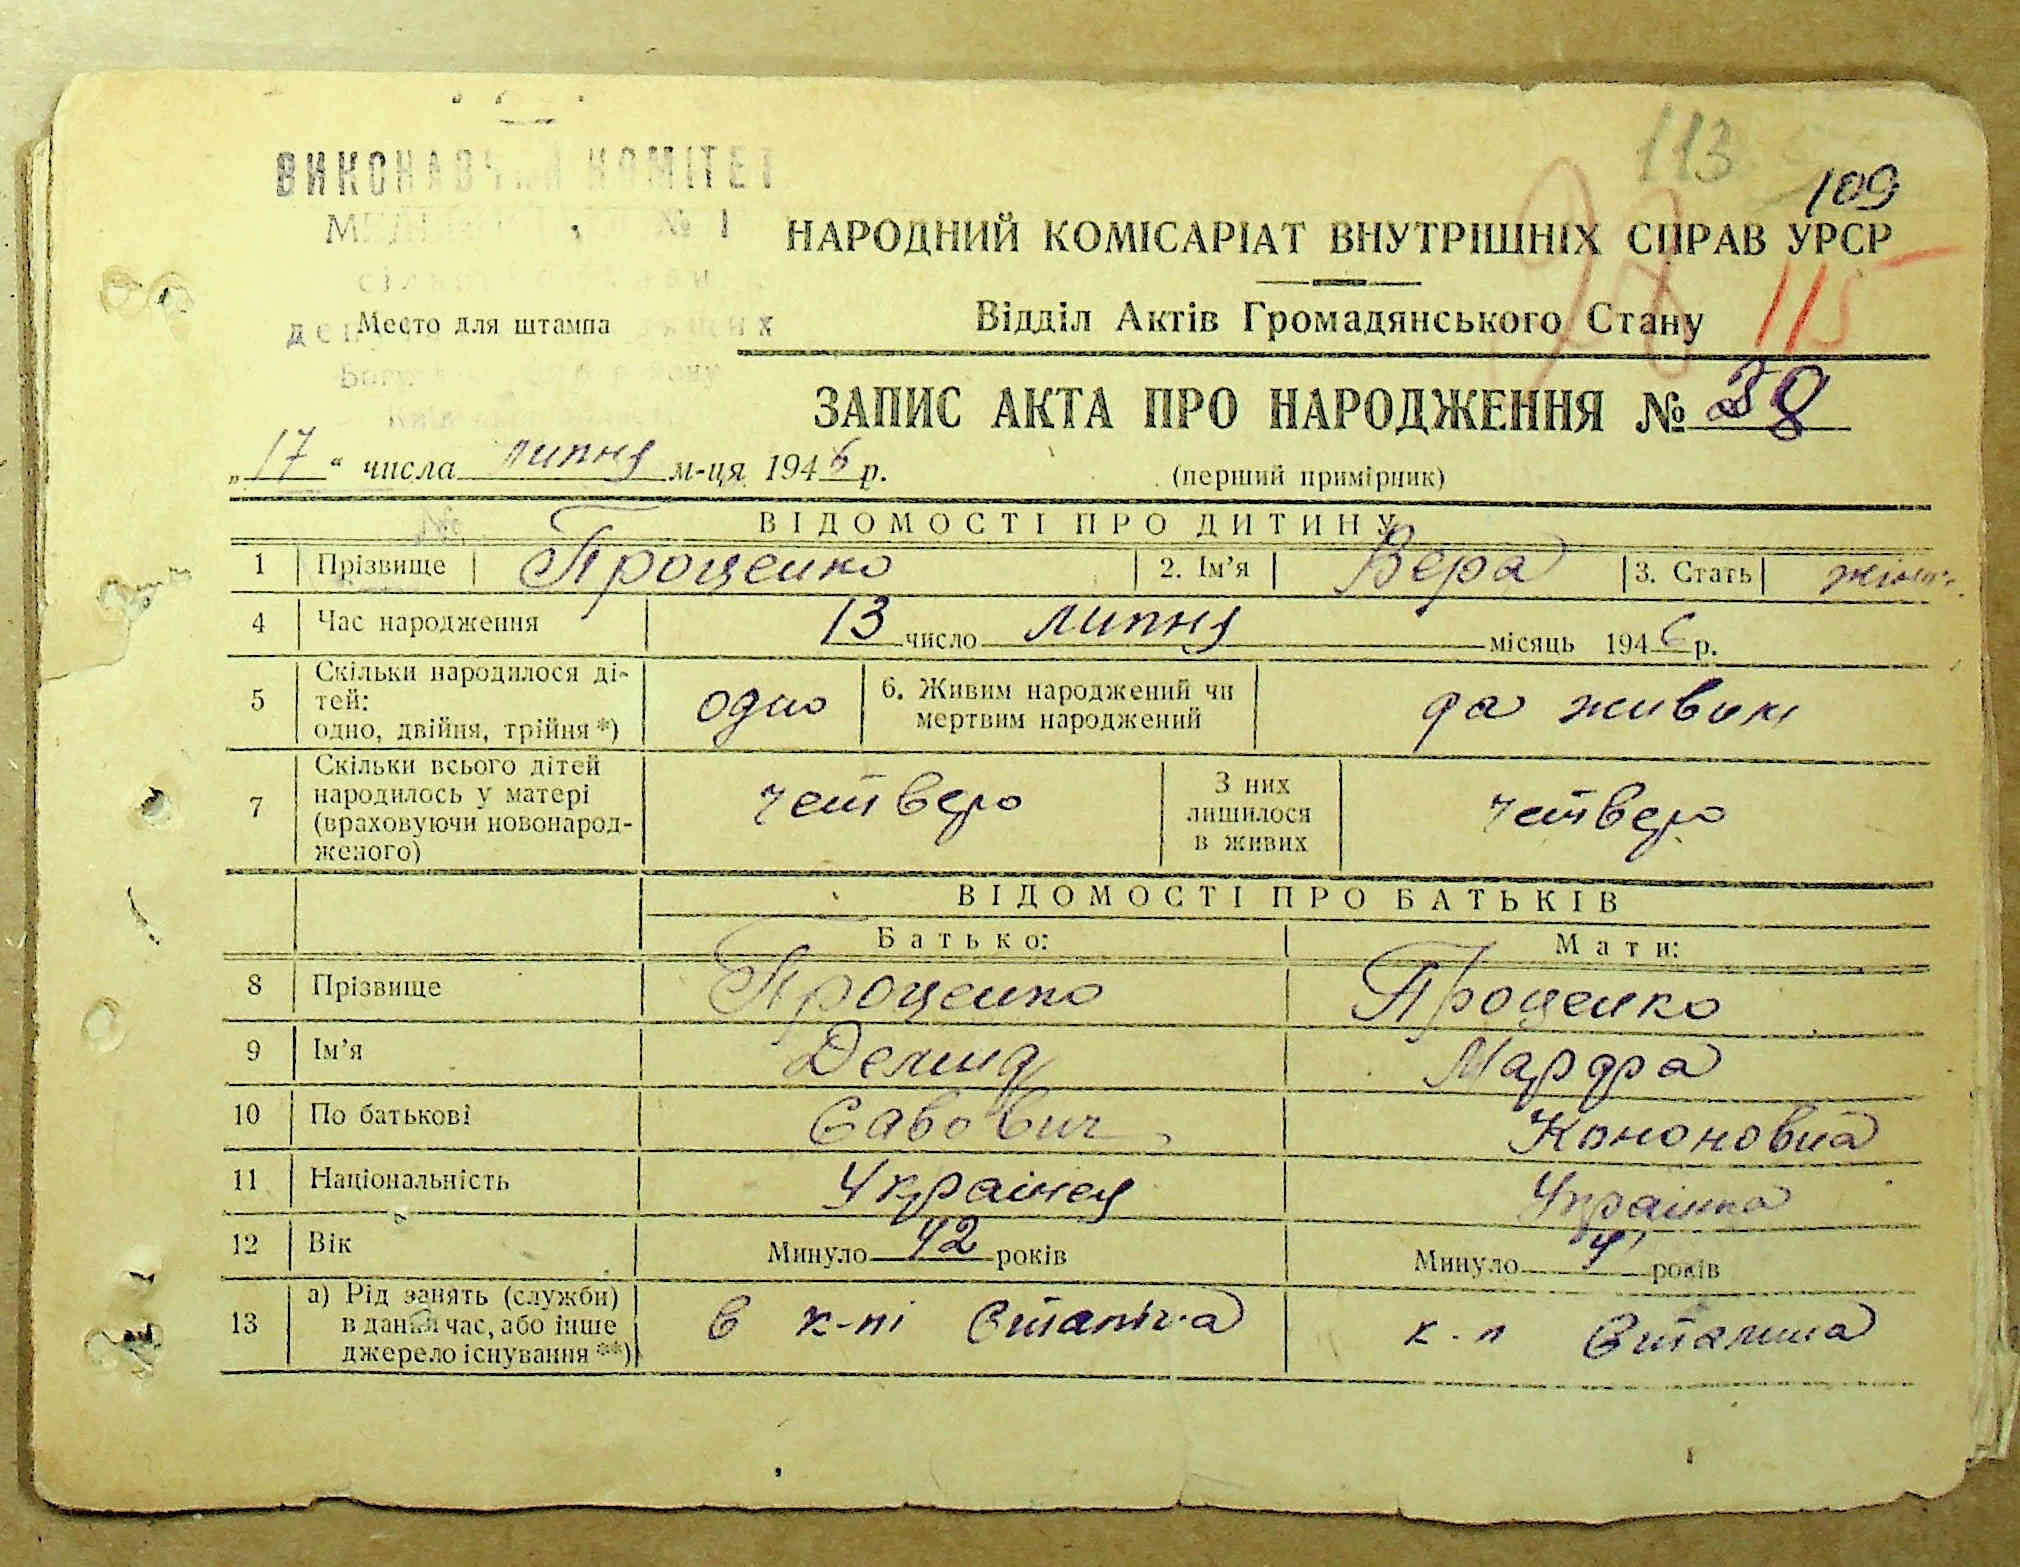 113
109
ВИКОНАВЧИЙ КОМІТЕТ
№ 1
НАРОДНИЙ КОМІСАРІАТ ВНУТРІШНІХ СПРАВ УРСР
115
Место для штампа
Відділ Актів Громадянського Стану
ЗАПИС АКТА ПРО НАРОДЖЕННЯ № 38
„17“ числа липня м-ця 1946 р.
(перший примірник)
ВІДОМОСТІ ПРО ДИТИНУ
1 Прізвище Проценко 2. Ім'я Вера 3. Стать жіноч.
4 Час народження 13 число липня місяць 1946 р.
5 Скільки народилося ді-
тей:
одно, двійня, трійня *)
одно
6. Живим народжений чи
мертвим народжений
да живим
7 Скільки всього дітей
народилось у матері
(враховуючи новонарод-
женого)
четверо
З них
лишилося
в живих
четверо
ВІДОМОСТІ ПРО БАТЬКІВ
Батько: Мати:
8 Прізвище Проценко Проценко
9 Ім'я Демид Марфа
10 По батькові Савович Кононовна
11 Національність Українец Украінка
12 Вік Минуло 42 років Минуло років
13 а) Рід занять (служби)
в даний час, або інше
джерело існування **)
в к-пі Сталіна к-п Сталина